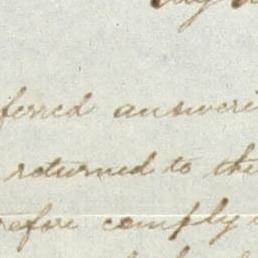 ferred answeri
returned to the
refore comply